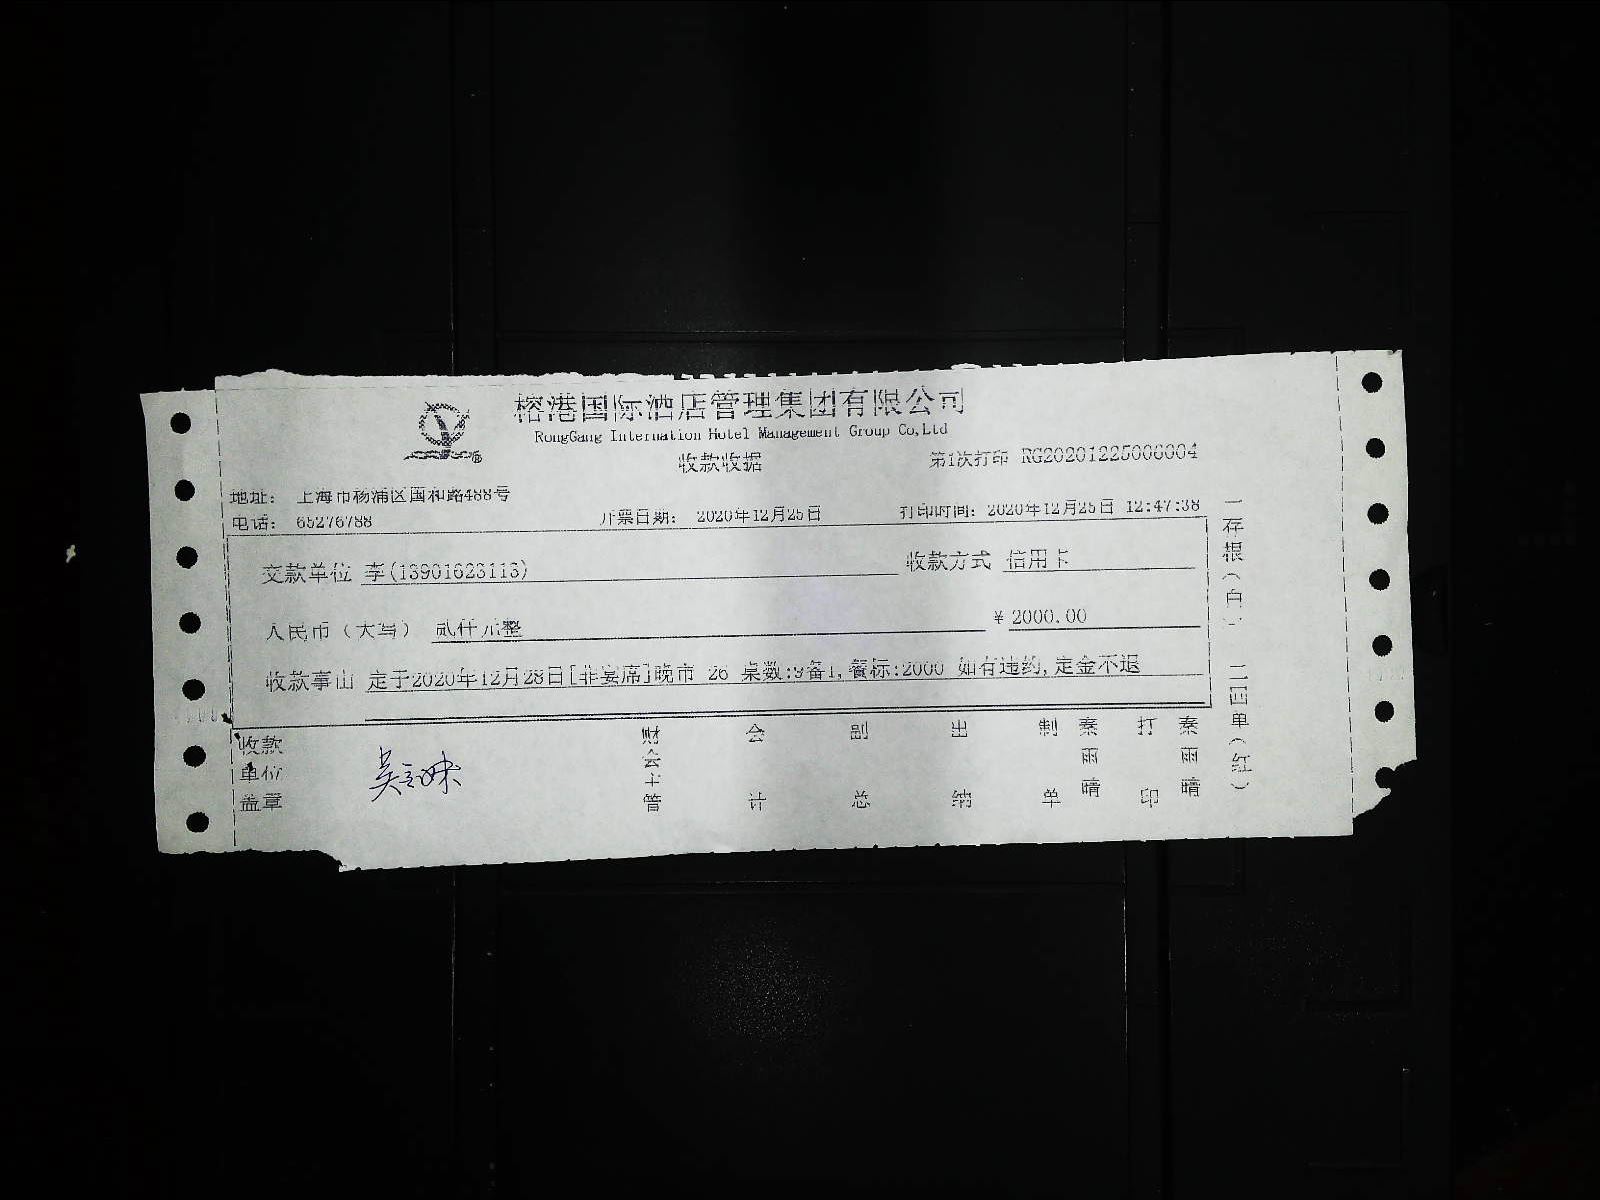 榕港国际酒店管理集团有限公司
RongGang Internation Hotel Management Group Co,Ltd
收款收据
第1次打印 RG20201225000004
地址： 上海市杨浦区国和路488号
电话： 65276788 开票日期： 2020年12月25日 打印时间：2020年12月25日 12:47:38
交款单位 李(13901623113) 收款方式 信用卡
人民币（大写） 贰仟元整 ￥2000.00
收款事由 定于2020年12月28日[非宴席]晚市 26 桌数:9备1,餐标:2000 如有违约,定金不退
收款单位盖章
财会主管
会计
副总
出纳
制单 秦雨晴
打印 秦雨晴
一存根（白） 二四单（红）